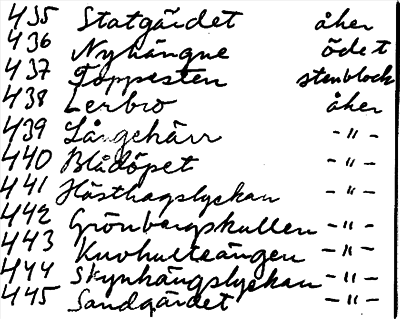 435 Statgärdet åker
436 Nyhängne ödet
437 Toppesten stenblock
438 Lerbro åker
439 Långekärr -"-
440 Blådöpet -"-
441 Hästhagslyckan -"-
442 Grönbergskullen -"-
443 Kuvhulteängen -"-
444 Skynhängslyckan -"-
445 Sandgärdet -"-